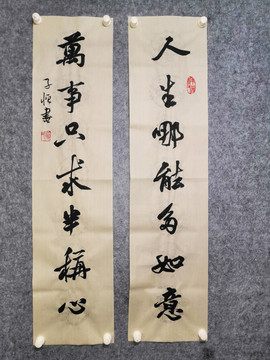 人生哪能多如意
萬事只求半稱心
子恒書